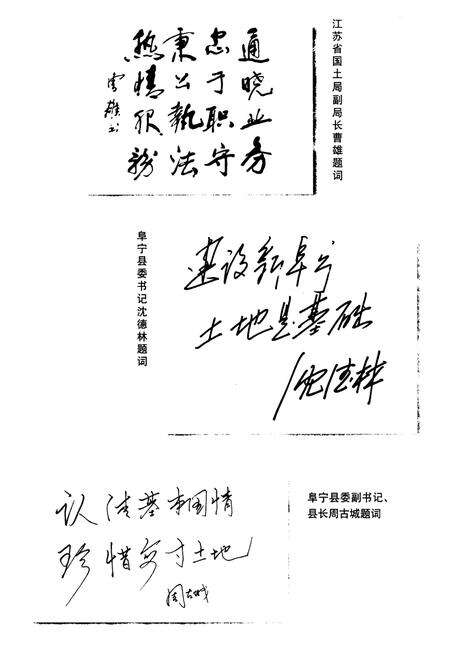 通晓业务
忠于职守
秉公執法
热情服务
曹雄书
江苏省国土局副局长曹雄题词
建设新阜宁
土地是基础
沈德林
阜宁县委书记沈德林题词
认清基本国情
珍惜每寸土地
周古城
阜宁县委副书记、
县长周古城题词